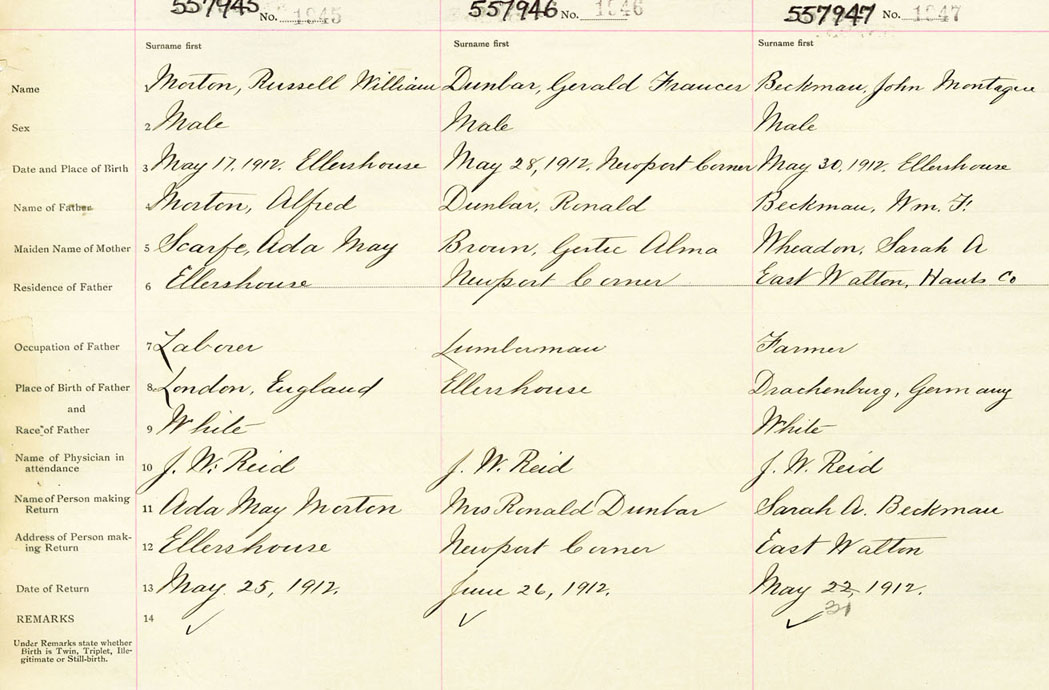 557945 No. 1945 557946 No. 1946 557947 No. 1947
Surname first Surname first Surname first
Name 1 Morton, Russell William Dunbar, Gerald Frances Beckman, John Montague
Sex 2 Male Male Male
Date and Place of Birth 3 May 17, 1912. Ellershouse May 28, 1912, Newport Corner May 30, 1912. Ellershouse
Name of Father 4 Morton, Alfred Dunbar, Ronald Beckman, Wm. F.
Maiden Name of Mother 5 Scarfe, Ada May Brown, Gertie Alma Wheadon, Sarah A
Residence of Father 6 Ellershouse Newport Corner East Walton, Hants Co
Occupation of Father 7 Laborer Lumberman Farmer
Place of Birth of Father 8 London, England Ellershouse Drachenburg, Germany
and
Race of Father 9 White White
Name of Physician in
attendance 10 J. W. Reid J. W. Reid J. W. Reid
Name of Person making
Return 11 Ada May Morton Mrs Ronald Dunbar Sarah A. Beckman
Address of Person mak-
ing Return 12 Ellershouse Newport Corner East Walton
Date of Return 13 May 25, 1912. June 26, 1912. May 22, 1912.
31
REMARKS 14 ✓ ✓ ✓
Under Remarks state whether
Birth is Twin, Triplet, Ille-
gitimate or Still-birth.